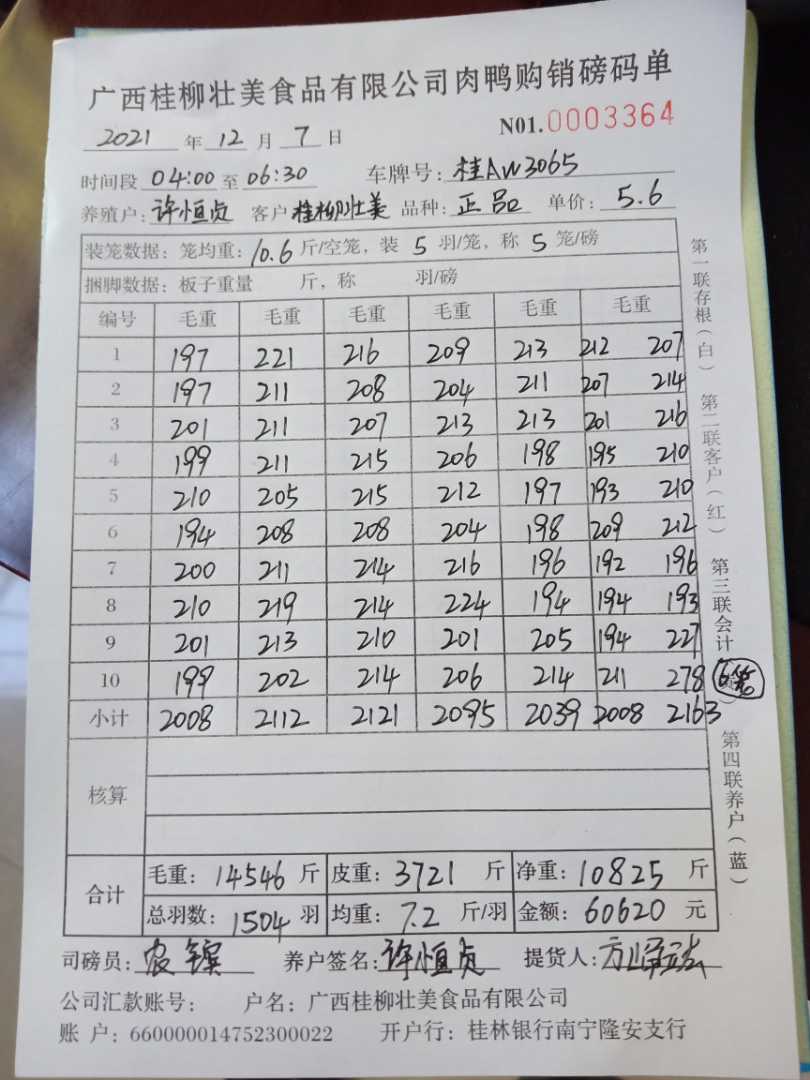 广西桂柳壮美食品有限公司肉鸭购销磅码单
2021 年 12 月 7 日 N01.0003364
时间段 04:00 至 06:30 车牌号: 桂AW3065
养殖户: 许恒贞 客户 桂柳壮美 品种: 正品 单价: 5.6
装笼数据: 笼均重: 10.6 斤/空笼, 装 5 羽/笼, 称 5 笼/磅
捆脚数据: 板子重量 斤, 称 羽/磅
编号 毛重 毛重 毛重 毛重 毛重 毛重
1 197 221 216 209 213 212 207
2 197 211 208 204 211 207 214
3 201 211 207 213 213 201 216
4 199 211 215 206 198 195 210
5 210 205 215 212 197 193 210
6 194 208 208 204 198 209 212
7 200 211 214 216 196 192 196
8 210 219 214 224 194 194 193
9 201 213 210 201 205 194 227
10 199 202 214 206 214 211 278 6笼
小计 2008 2112 2121 2095 2039 2008 2163
核算
合计
毛重: 14546 斤 皮重: 3721 斤 净重: 10825 斤
总羽数: 1504 羽 均重: 7.2 斤/羽 金额: 60620 元
司磅员: 农 养户签名: 许恒贞 提货人: 方
公司汇款账号: 户名: 广西桂柳壮美食品有限公司
账 户: 660000014752300022 开户行: 桂林银行南宁隆安支行
第一联存根(白) 第二联客户(红) 第三联会计 ) 第四联养户(蓝)